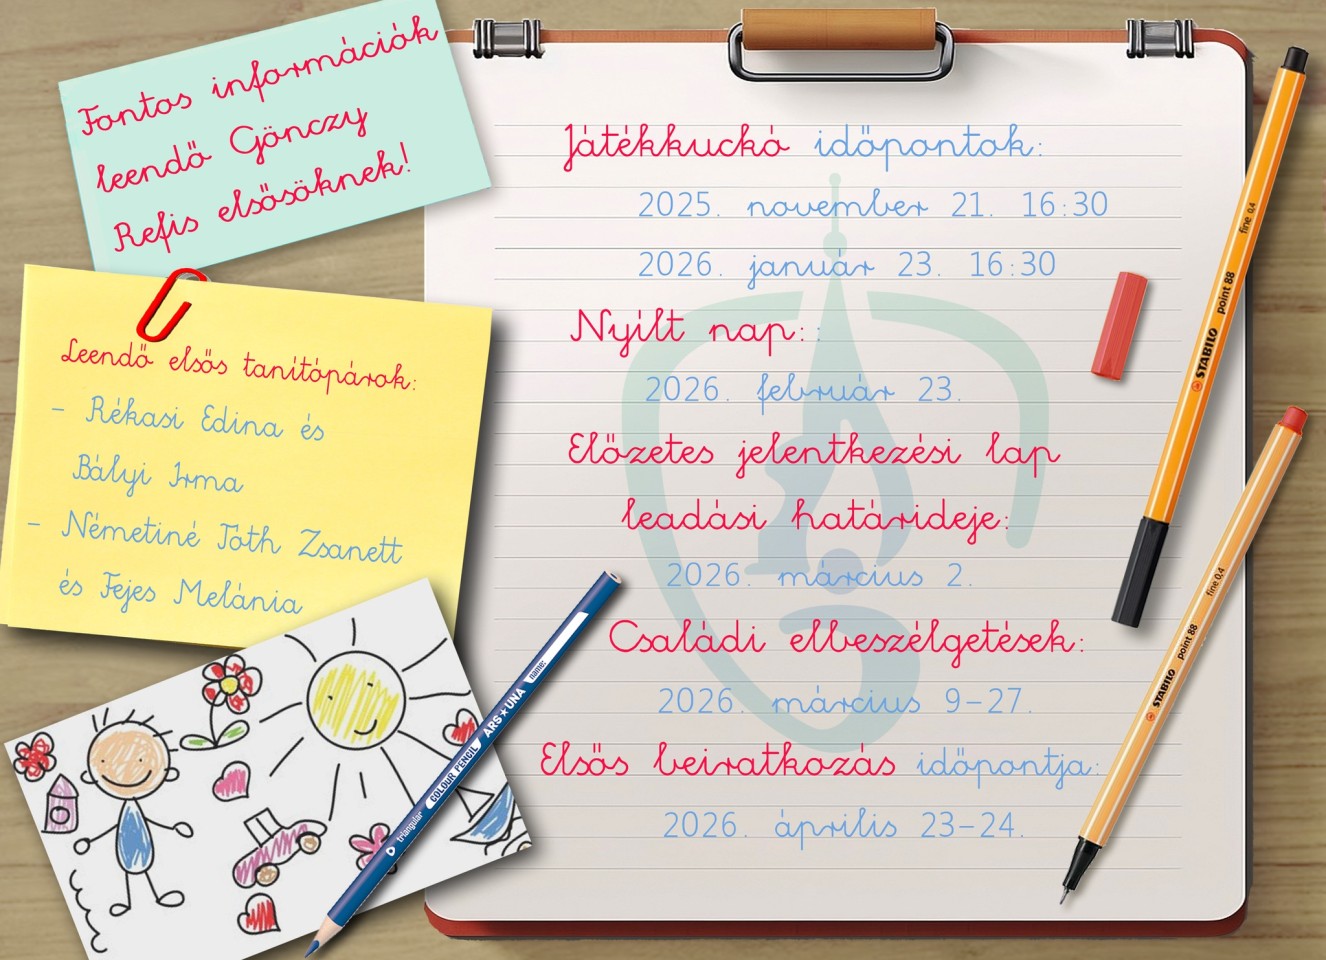 Fontos információk
leendő Gönczy
Refis elsősöknek!
Leendő elsős tanítópárok:
- Rékasi Edina és
Bályi Irma
- Németiné Tóth Zsanett
és Fejes Melánia
Játékkuckó időpontok:
2025. november 21. 16:30
2026. január 23. 16:30
Nyílt nap::
2026. február 23.
Előzetes jelentkezési lap
leadási határideje:
2026. március 2.
Családi elbeszélgetések:
2026. március 9-27.
Elsős beiratkozás időpontja:
2026. április 23-24.
STABILO point 88 fine 0,4
STABILO point 88 fine 0,4
triangular COLOUR PENCIL ARS★UNA name: